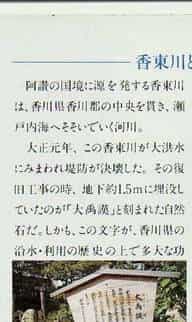 香東川と
阿讃の国境に源を発する香東川
は、香川県香川郡の中央を貫き、瀬
戸内海へそそいでいく河川。
大正元年、この香東川が大洪水
にみまわれ堤防が決壊した。その復
旧工事の時、地下約1.5mに埋没し
ていたのが「大禹謨」と刻まれた自然
石だ。しかも、この文字が、香川県の
治水・利用の歴史の上で多大な功
大禹謨